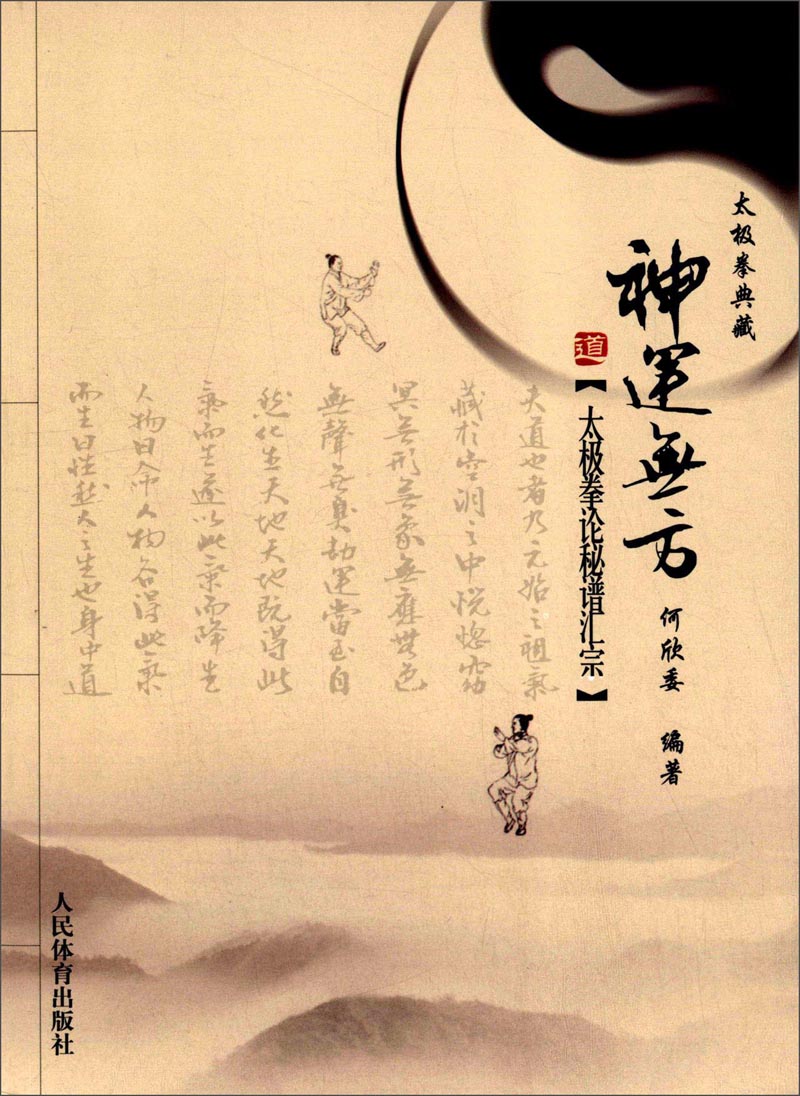 太极拳典藏
神運無方
道
【太极拳论秘谱汇宗】
何欣委 编著
夫道也者乃元始之祖氣
藏於空洞之中恍惚窈
冥无形无象無應無色
無聲无臭劫運當至自
然化生天地天地既得此
氣而生遂以此氣而降生
人物曰命人物各得此氣
而生曰性然人之生也身中道
人民体育出版社